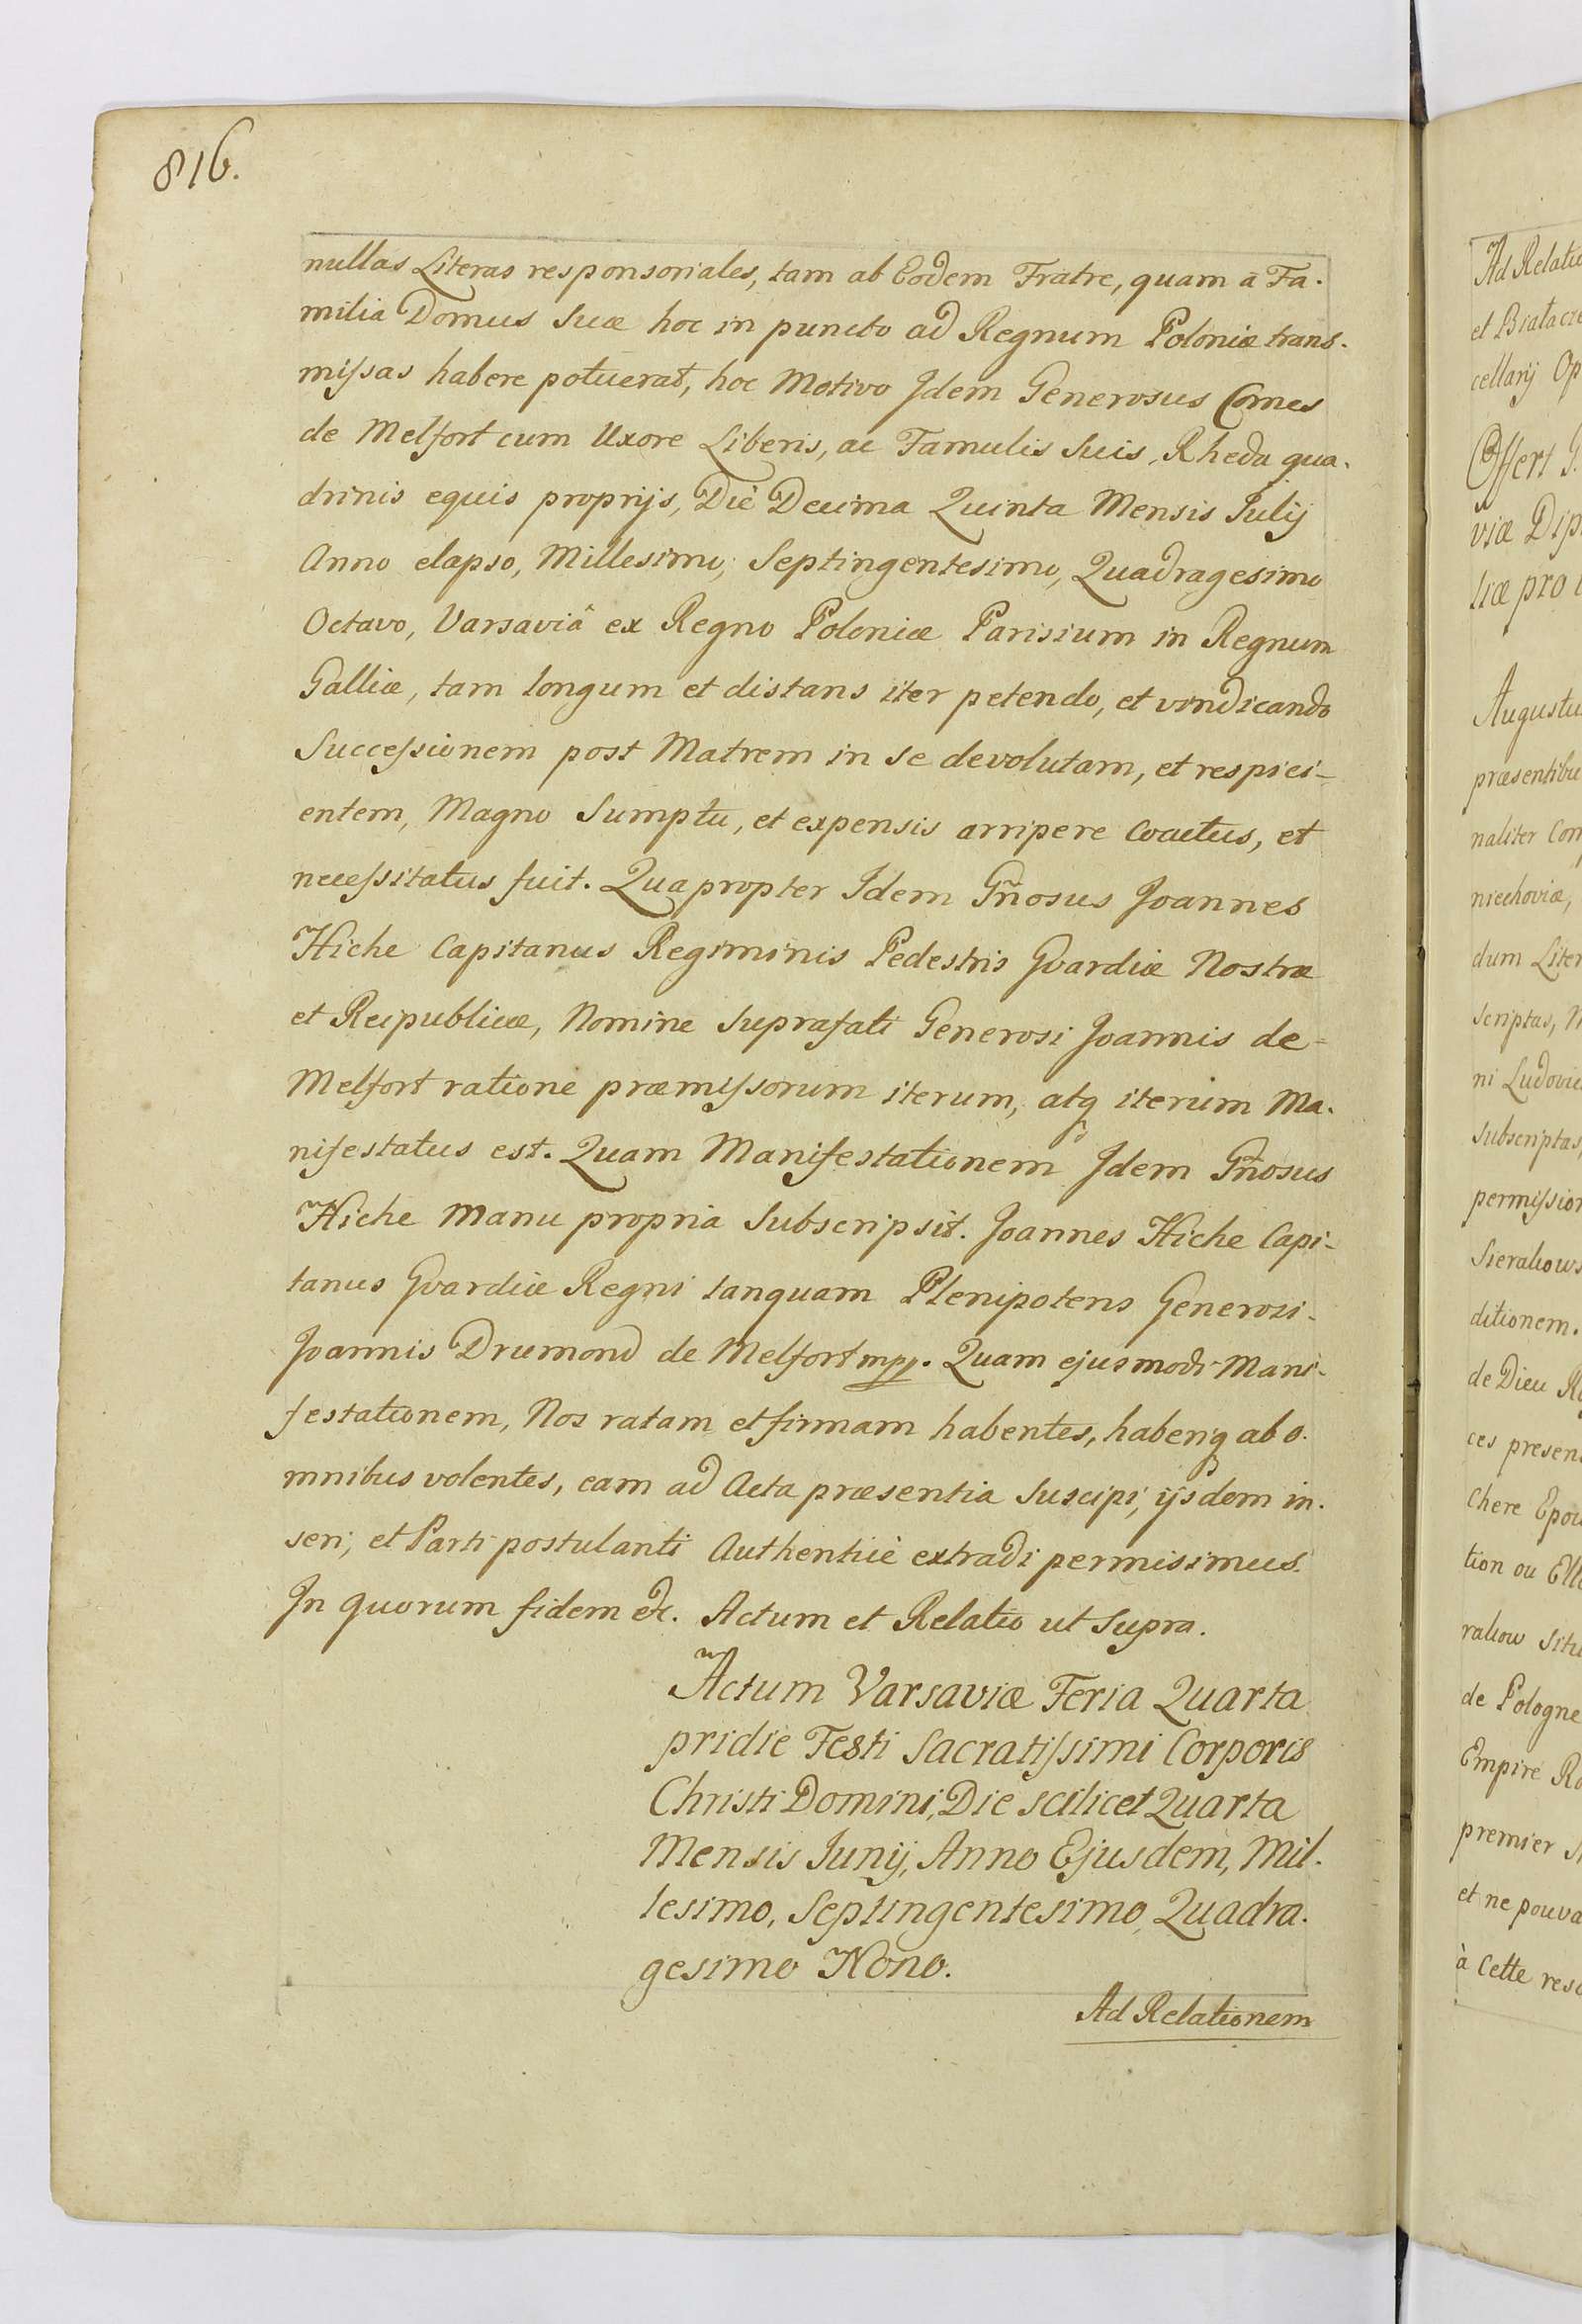 816.
nullas Literas responsoriales, tam ab Eodem Fratre, quam â Fa.
milia Domus Suæ hoc in puncto ad Regnum Poloniæ trans.
missas habere potuerat, hoc Motivo Jdem Generosus Comes
de Melfort cum Uxore Liberis, ac Famulis Suis, Rheda qua.
drinis equis proprijs, Diè Decima Quinta Mensis Julij
Anno elapso, Millesimo, Septingentesimo, Quadragesimo
Octavo, Varsaviâ ex Regno Poloniæ Parisium in Regnum
Galliæ, tam longum et distans iter petendo, et vindicando
Successionem post Matrem in se devolutam, et respici-
entem, Magno Sumptu, et expensis arripere coactus, et
necessitatus fuit. Quapropter Idem Gñosus Joannes
Hiche Capitanus Regiminis Pedestris Gvardiæ Nostræ
et Reipublicæ, Nomine Suprafati Generosi Joannis de-
Melfort ratione præmissorum iterum, atq iterum Ma.
nifestatus est. Quam Manifestationem Jdem Gñosus
Hiche Manu propria Subscripsit. Joannes Hiche Capi-
tanus Gvardiæ Regni tanquam Plenipotens Generosi-
Joannis Drumond de Melfort mpp. Quam ejusmodi Mani-
festationem, Nos ratam et firmam habentes, haberiq ab o.
mnibus volentes, eam ad Acta præsentia Suscipi, ijsdem in.
seri, et Parti postulanti Authenticè extradi permisimus.
Jn quorum fidem etc. Actum et Relatio ut Supra.
Actum Varsaviæ Feria Quarta
pridie Festi Sacratissimi Corporis
Christi Domini, Die scilicet Quarta
Mensis Junij, Anno Ejusdem, Mil.
lesimo, Septingentesimo, Quadra.
gesimo Nono.
Ad Relationem
Ad
et
cellarij
Offert
viæ
liæ pro
naliter
niechoviæ,
dum
scriptas,
ni
ditionem.
de Dieu
ces
Chere
tion ou
de Pologne
Empire
premier
et ne
à Cette